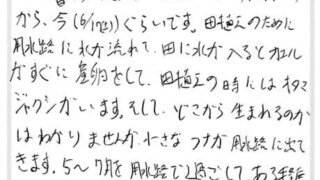 から、今(6/17(土))ぐらいです。田植えのために
用水路に水が流れて、田に水が入るとカエル
がすぐに産卵をして、田植えの時にはオタマ
ジャクシがいます。そして、どこから生まれるのか
はわかりませんが、小さなフナが用水路に出て
きます。5〜7月を用水路で過ごして、ある程